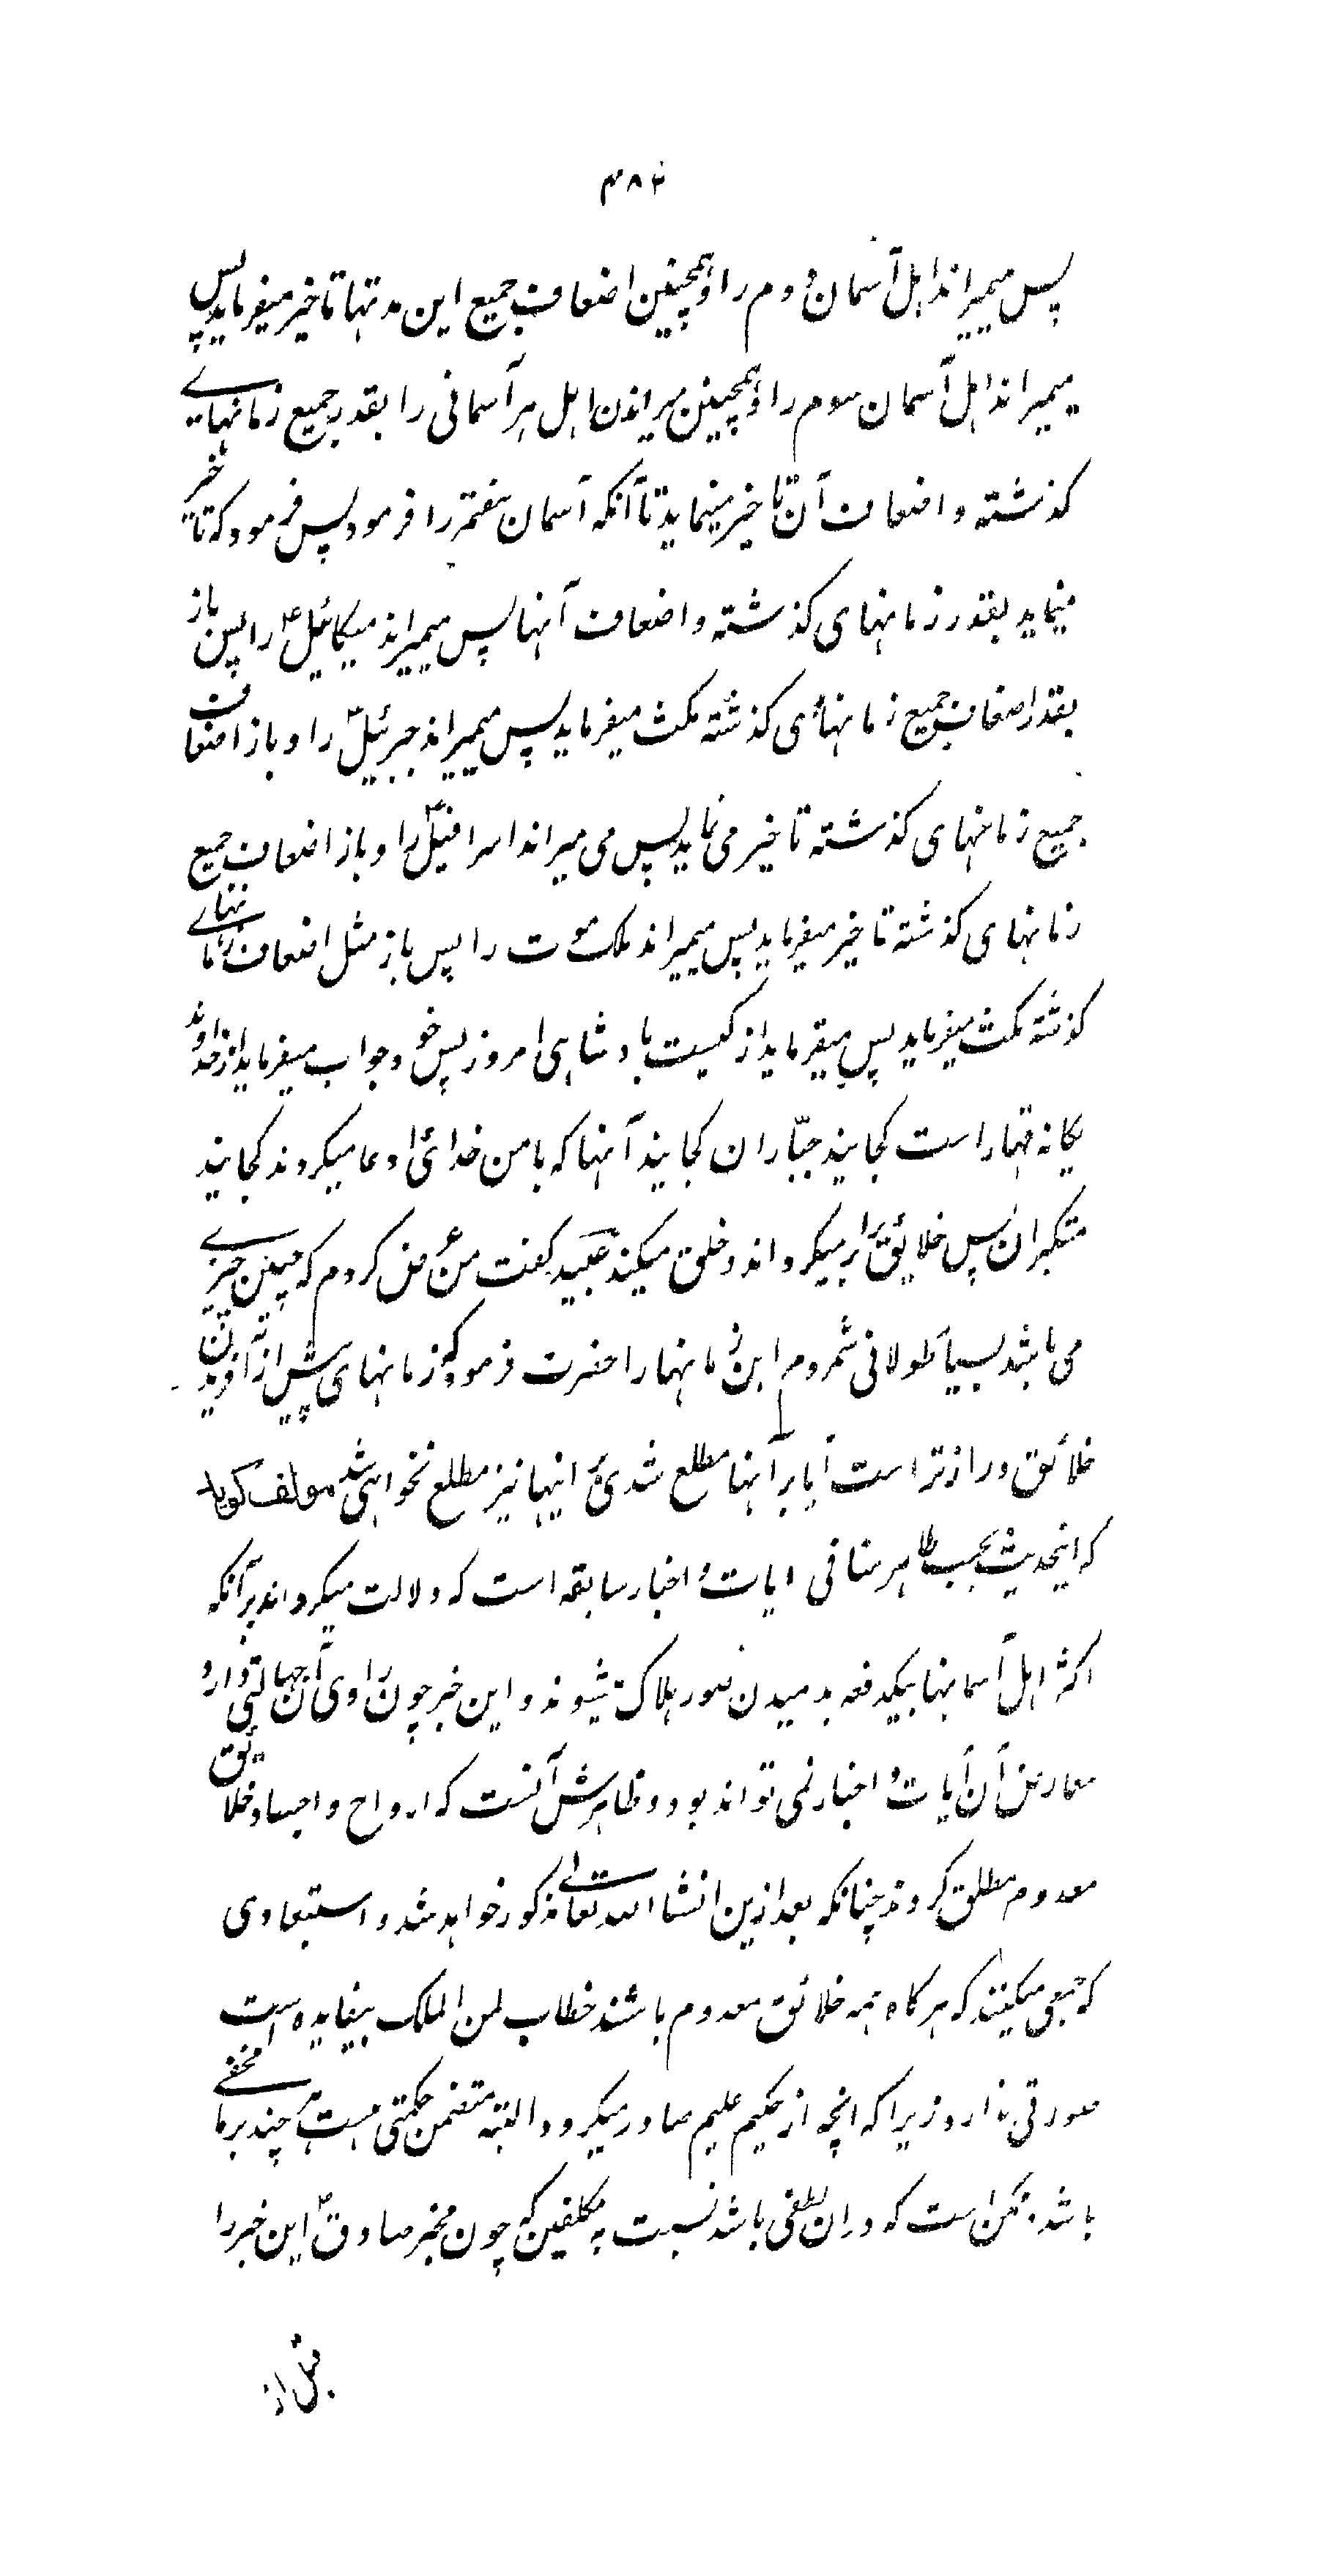 ۴۸۴
پس میمیراند اهل آسمان دوم را و همچنین اضعاف جمیع این مدتها تاخیر میفرماید پس
میمیراند اهل آسمان سوم را و همچنین میراندن اهل هر آسمانی را بقدر جمیع زمانهاے
گذشته و اضعاف آن تاخیر مینماید تا آنکه آسمان هفتم را فرمود پس فرمود که تاخیر
مینماید بقدر زمانهای گذشته و اضعاف آنها پس میمیراند میکائیل ع را پس باز
بقدر اضعاف جمیع زمانهای گذشته مکث میفرماید پس میمیراند جبرئیل ع را و باز اضعاف
جمیع زمانهای گذشته تاخیر می نماید پس می میراند اسرافیل ع را و باز اضعاف جمیع
زمانهای گذشته تاخیر میفرماید پس میمیراند ملک موت را پس باز مثل اضعاف زمانهاے
گذشته مکث میفرماید پس میفرماید از کیست بادشاهی امروز پس خود جواب میفرماید از خداوند
یگانه قهار است کجایند جبّاران کجایند آنها که با من خدائی ادعا میکردند کجایند
متکبران پس خلائق را بر میگرداند و خلق میکند عبید گفت من عرض کردم که چنین چیزے
می باشد بسیار طولانی شمردم این زمانها را حضرت فرمود که زمانهای پیش از آفریدن
خلائق درازتر است آیا بر آنها مطلع شدی اینها نیز مطلع نخواهی شد مولف گوید
که اینحدیث بحسب ظاهر منافی ایات و اخبار سابقه است که دلالت میکرد اند بر آنکه
اکثر اهل آسمانها بیکدفعه بدمیدن صور هلاک میشوند و این خبر چون راوی آن جهالتی دارد
معارض آن آیات و اخبار نمی تواند بود و ظاهرش آنست که ارواح و اجساد خلایق
معدوم مطلق گردند چنانکه بعد ازین انشاء الله تعالے مذکور خواهد شد و استبعادی
که جمعی میکنند که هرگاه همه خلائق معدوم باشند خطاب لمن الملک بیفایده است
صورتی ندارد زیرا که انچه از حکیم علیم صادر میگردد البته متضمن حکمتی هست هر چند بر ما مخفے
باشد ممکن است که دران لطفی باشد نسبت به مکلفین که چون مخبر صادق ع این خبر را
قبل از